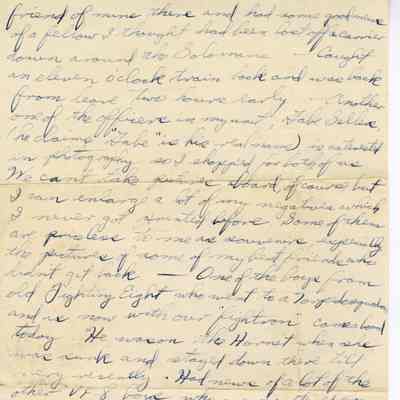 friend of mine there and had some good news
of a fellow I thought had been lost off a carrier
down around the Solomons — Caught
an eleven o'clock train back and was back
from leave two hours early — Another
one of the officers in my unit, Gabe
(he claims "Gabe" is his real name) is interested
in photography so I shopped for both of us
We can't take pictures aboard, of course but
I can enlarge a lot of my negatives which
I never got printed before Some of them
are priceless to me as souvenirs especially
the pictures of some of my best friends who
didn't get back — One of the boys from
old Fighting Eight who went to a
and is now with our "fightron" came aboard
today He was on the Hornet when she
was sunk and stayed down there til
very recently. Had news of a lot of the
other VF 8 boys